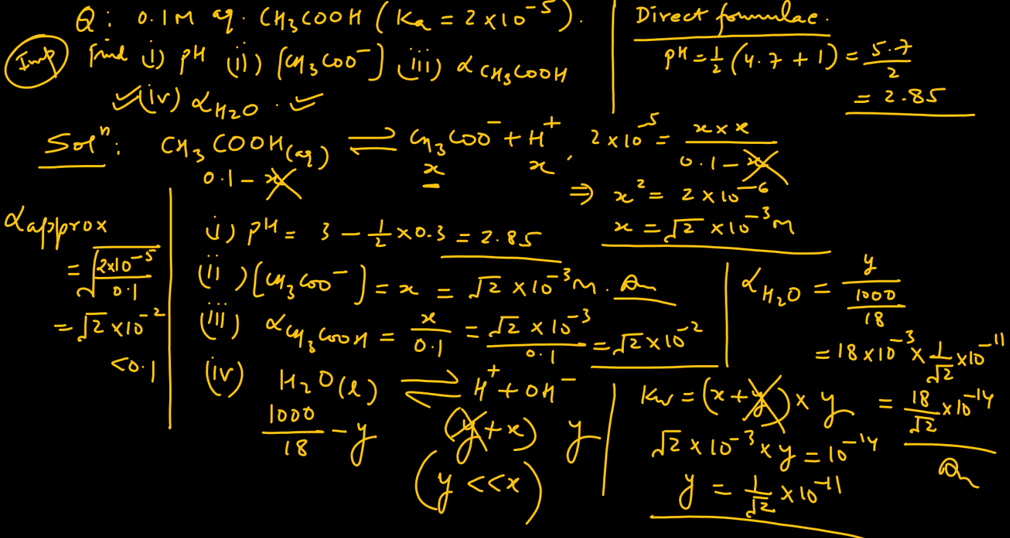 Q: 0.1M aq. CH₃COOH (Ka = 2×10⁻⁵).
Imp
Find i) pH (ii) [CH₃COO⁻] (iii) α CH₃COOH
✓(iv) α H₂O . ✓
Direct formulae.
pH = 1/2 (4.7 + 1) = 5.7/2
= 2.85
Solⁿ: CH₃COOH(aq) ⇌ CH₃COO⁻ + H⁺, 2×10⁻⁵ = x × x / 0.1 - x
0.1 - x x x
⇒ x² = 2×10⁻⁶
x = √2 ×10⁻³ M
α approx
= √(2×10⁻⁵ / 0.1)
= √2 ×10⁻²
< 0.1
i) pH = 3 - 1/2 × 0.3 = 2.85
(ii) [CH₃COO⁻] = x = √2 ×10⁻³ M. An
(iii) α CH₃COOH = x/0.1 = √2 ×10⁻³ / 0.1 = √2 ×10⁻²
(iv) H₂O(l) ⇌ H⁺ + OH⁻
1000/18 - y (y + x) y
(y << x)
Kw = (x + y) × y
√2 ×10⁻³ × y = 10⁻¹⁴
y = 1/√2 ×10⁻¹¹
α H₂O = y / (1000/18)
= 18×10⁻³ × 1/√2 ×10⁻¹¹
= 18/√2 ×10⁻¹⁴
An